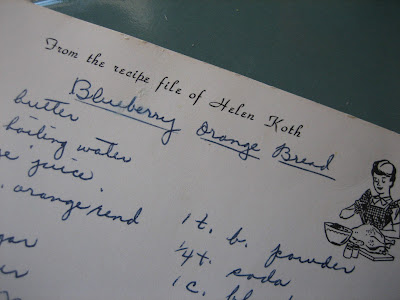 From the recipe file of Helen Koth
Blueberry Orange Bread
butter
boiling water
juice
orange rend
1 t. b. powder
1/4 t. soda
1 c.